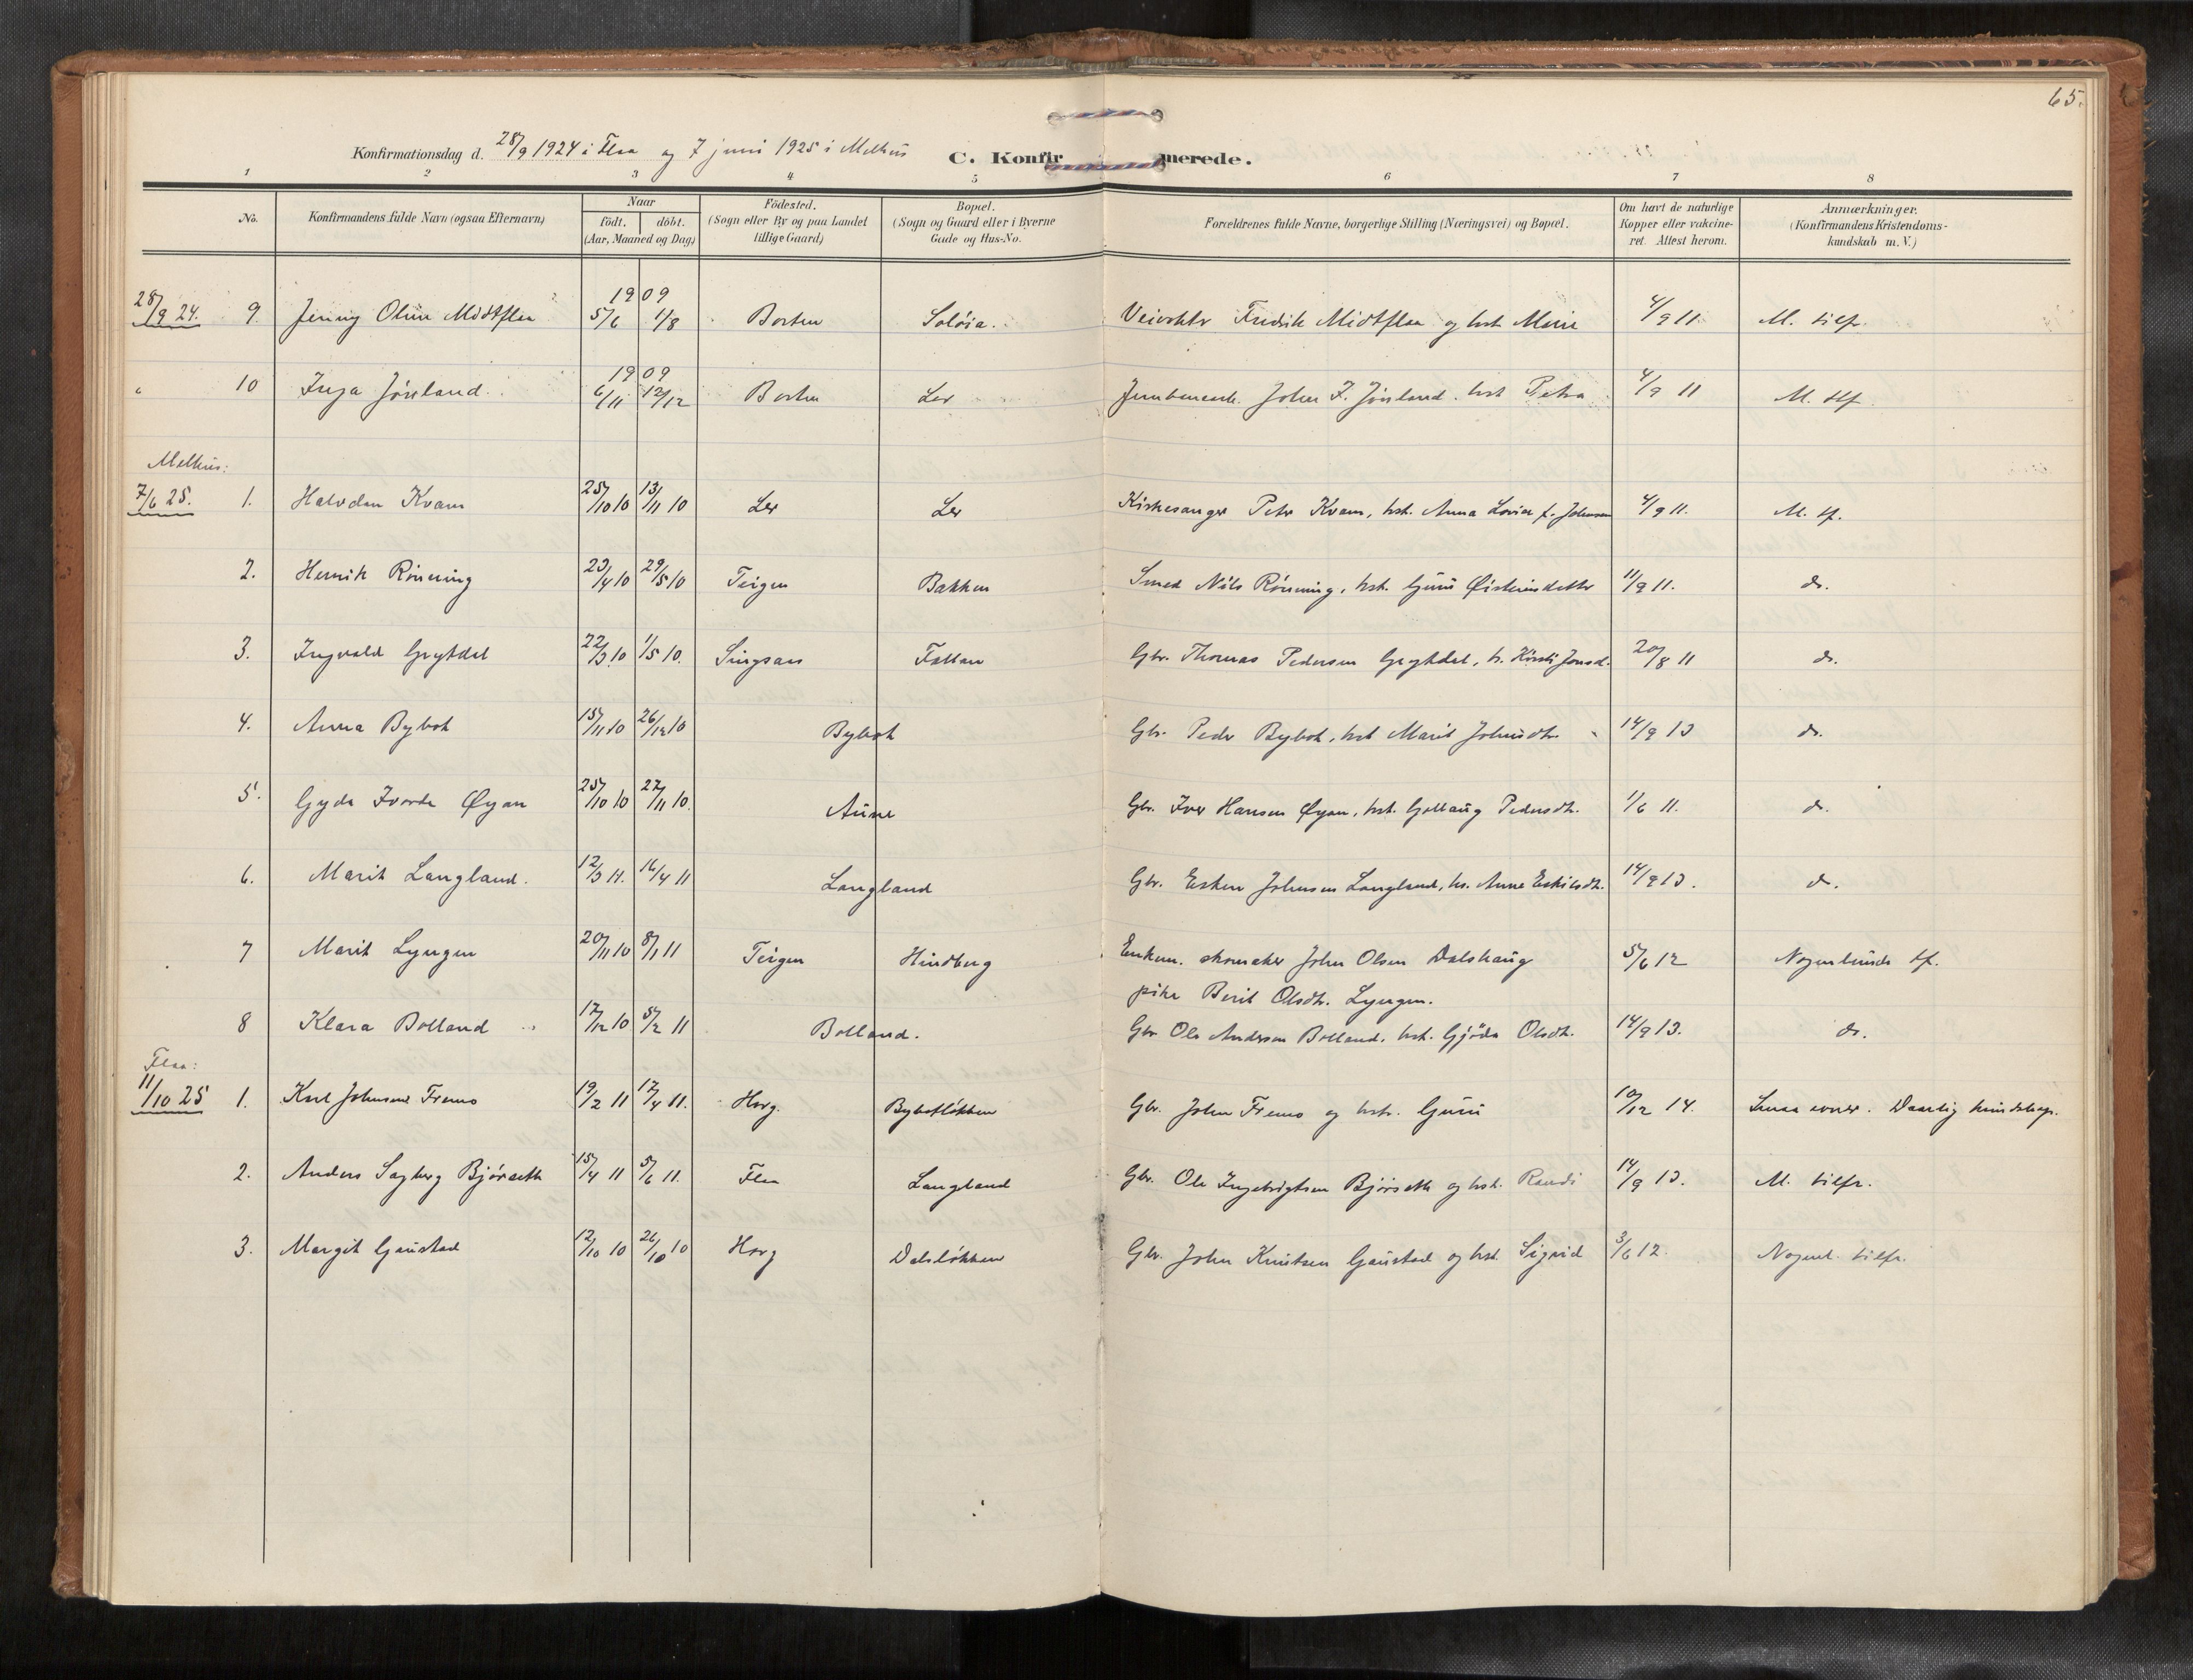 65.
Konfirmationsdag d. 28/9 1924 i Flaa og 7 juni 1925 i Melhus C. Konfir merede.
1 2 3 4 5 6 7 8
No. Konfirmandens fulde Navn (ogsaa Efternavn) Naar födt. döbt. (Aar, Maaned og Dag) Födested. (Sogn eller By og paa Landet tillige Gaard) Bopæl. (Sogn og Gaard eller i Byerne Gade og Hus-No. Forældrenes fulde Navne, borgerlige Stilling (Næringsvei) og Bopæl. Om havt de naturlige Kopper eller vakcineret. Attest herom. Anmærkninger. (Konfirmandens Kristendomskundskab m. V.)
1909
28/9 24. 9. Jenny Oline Midtflaa 5/6 1/8 Borten Soløia. Fredrik Midtflaa og hst. Marie 4/9 11. M. tilfr.
1909
" 10 Inga Jørsland 6/11 12/12 Borten Ler John J. Jørsland hst Petra 4/9 11 M. tlf.
Melhus:
7/6 25. 1. Halvdan Kvam 25/10 10 13/11 10 Ler Ler Kirkesanger Peter Kvam, hst. Anna Lovise f. Johnsen 4/9 11. M. tf.
2. Henrik Rönning 23/4 10 29/5 10 Teigen Bakken Smed Nils Rönning, hst. Guru Øisteinsdatter 11/9 11. do.
3. Ingvald Grytdal 22/3 10 1/5 10. Singsaas Fallan Gbr. Thomas Pedersen Grytdal, h. Kirsti Jonsd. 20/8 11 do.
4. Anna Bybot 15/11 10 26/12 10 Bybot Gbr. Peder Bybot, hst Marit Johnsdtr. 14/9 13 do.
5. Gyda Øyan 25/10 10 27/11 10. Aune Gbr. Iver Hansen Øyan, hst. Gollaug Pedersdtr. 1/6 11. do.
6. Marit Langland. 12/3 11. 16/4 11 Langland Gbr. Esten Johnsen Langland, hs. Anne Eskilsdtr. 14/9 13. do.
7 Marit Lyngen 20/11 10 8/1 11 Teigen Hindberg Enkem. skomaker John Olsen Dalshaug 5/6 12 Nogenlunde tf.
pike Berit Olsdtr. Lyngen.
8 Klara Bolland 17/12 10 5/2 11 Bolland. Gbr Ole Andersen Bolland, hst. Gjöda Olsdtr. 14/9 13. do.
Flaa:
11/10 25 1. Karl Johnsen Fremo 19/2 11 17/4 11. Horg. Bybotløkken Gbr. John Fremo og hstr. Guru 10/12 14. Smaa evner. Daarlig kundskap.
2. Anders Sagberg Bjørseth 15/4 11 5/6 11. Flaa Langland Gbr. Ole Ingebrigtsen Bjørseth og hst. Randi 14/9 13. M. tilfr.
3. Margit Gaustad 12/10 10 26/10 10 Horg Dalsløkken Gbr. John Knutsen Gaustad og hst. Sigrid 3/6 12. Nogenl. tilfr.